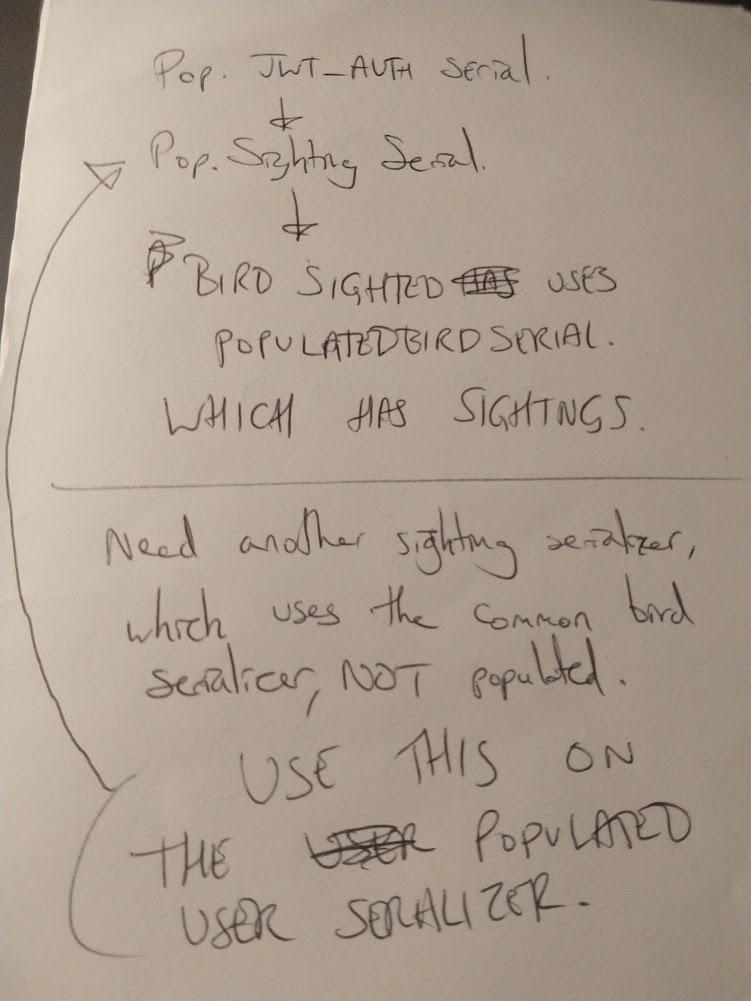 Pop. JWT_AUTH Serial.
Pop. Sighting Serial.
BIRD SIGHTED USES
POPULATEDBIRDSERIAL.
WHICH HAS SIGHTINGS.
Need another sighting serializer,
which uses the common bird
serializer, NOT populated.
USE THIS ON
THE POPULATED
USER SERALIZER.